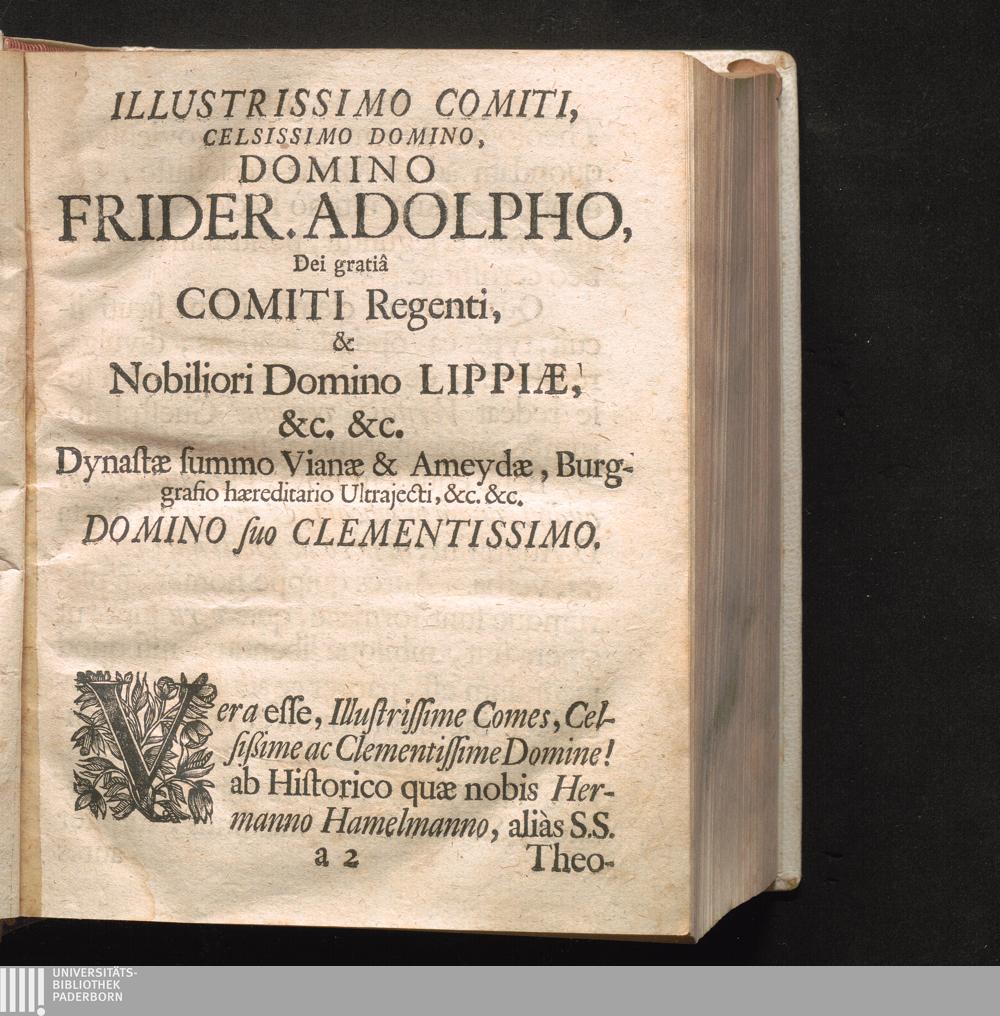 ILLUSTRISSIMO COMITI,
CELSISSIMO DOMINO,
DOMINO
FRIDER. ADOLPHO,
Dei gratiâ
COMITI Regenti,
&
Nobiliori Domino LIPPIÆ,
&c. &c.
Dynaſtæ ſummo Vianæ & Ameydæ, Burg-
grafio hæreditario Ultrajecti, &c. &c.
DOMINO ſuo CLEMENTISSIMO.
Vera eſſe, Illuſtriſſime Comes, Cel-
ſißime ac Clementiſſime Domine!
ab Hiſtorico quæ nobis Her-
manno Hamelmanno, aliàs S.S.
a 2 Theo-
UNIVERSITÄTS-
BIBLIOTHEK
PADERBORN